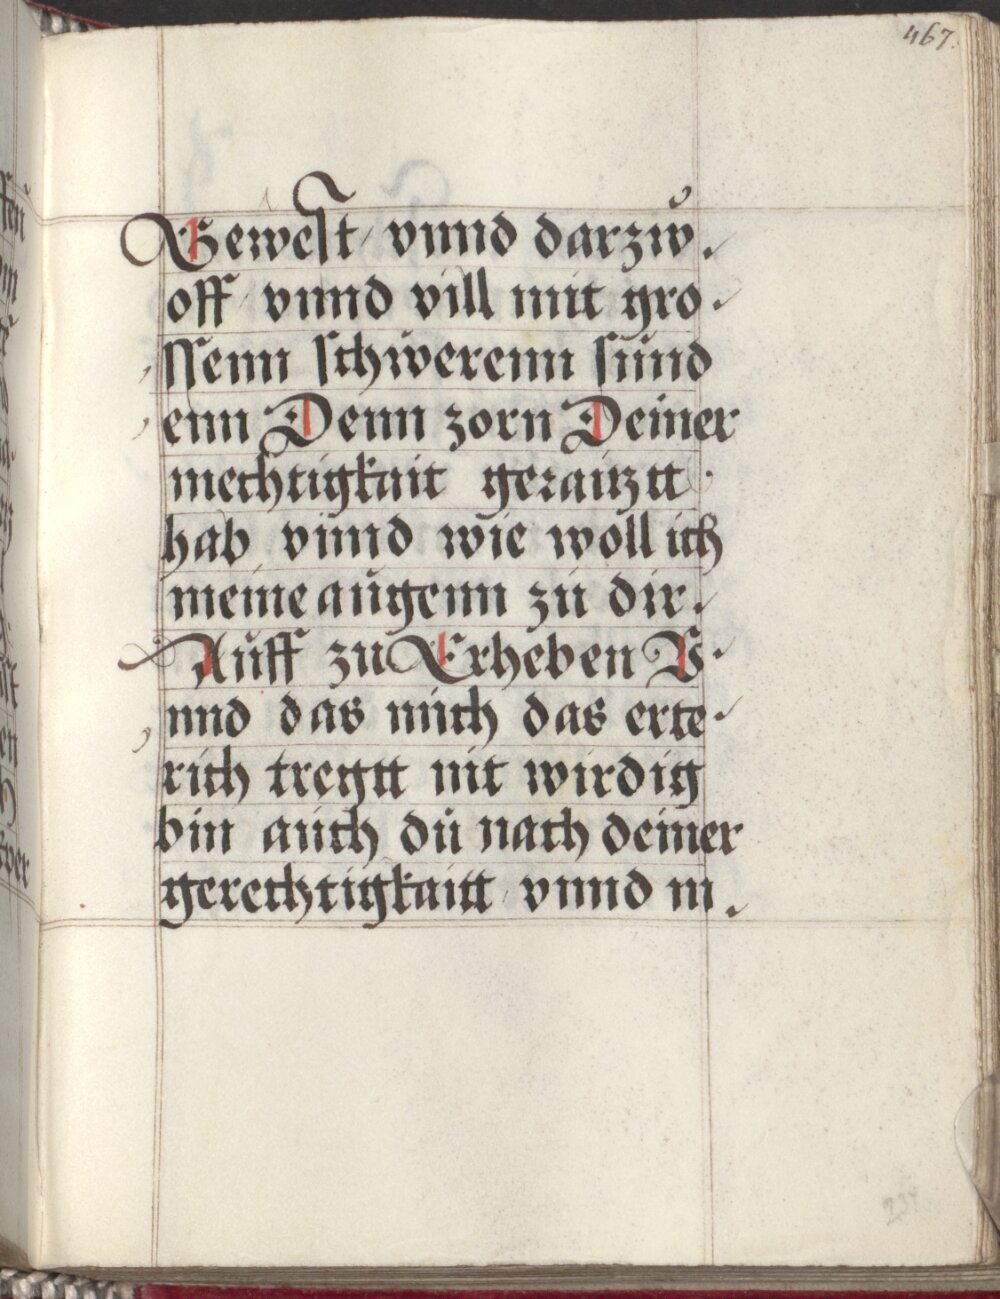 467.
Gewest / vnnd darzŵ.
off / vnnd vill mit gro.
ssenn schwerenn sünd
enn Denn zorn Deiner
mechtigkait geraitztt.
hab vnnd wie woll ich
meine augenn zu dir.
Auff zu Erheben V.
nnd das mich das erte.
rich tregtt nit wirdig
bin auch du nach deiner
gerechtigkaitt / vnnd in.
234